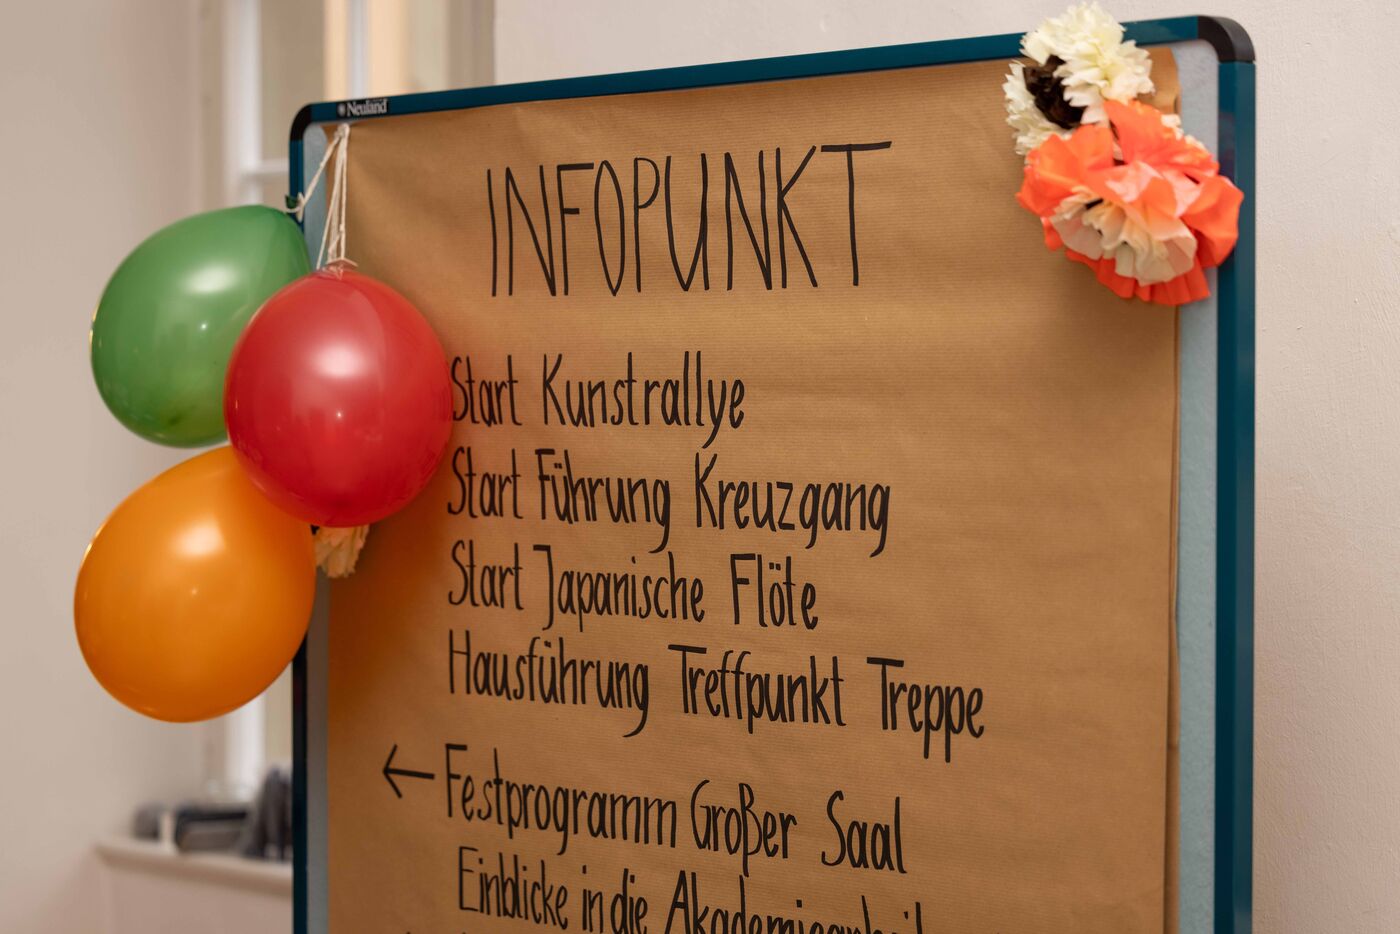 Neuland
INFOPUNKT
Start Kunstrallye
Start Führung Kreuzgang
Start Japanische Flöte
Hausführung Treffpunkt Treppe
← Festprogramm Großer Saal
Einblicke in die